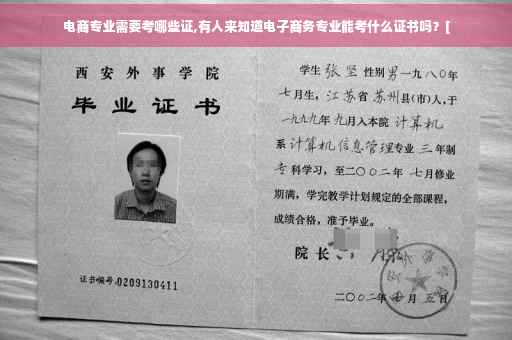 电商专业需要考哪些证,有人来知道电子商务专业能考什么证书吗？[
西安外事学院
毕业证书
证书编号:0209130411
学生张坚性别男一九八〇年
七月生，江苏省苏州县(市)人,于
一九九九年九月入本院计算机
系计算机信息管理专业三年制
专科学习，至二〇〇二年七月修业
期满，学完教学计划规定的全部课程，
成绩合格，准予毕业。
院长
二〇〇二年 月五日